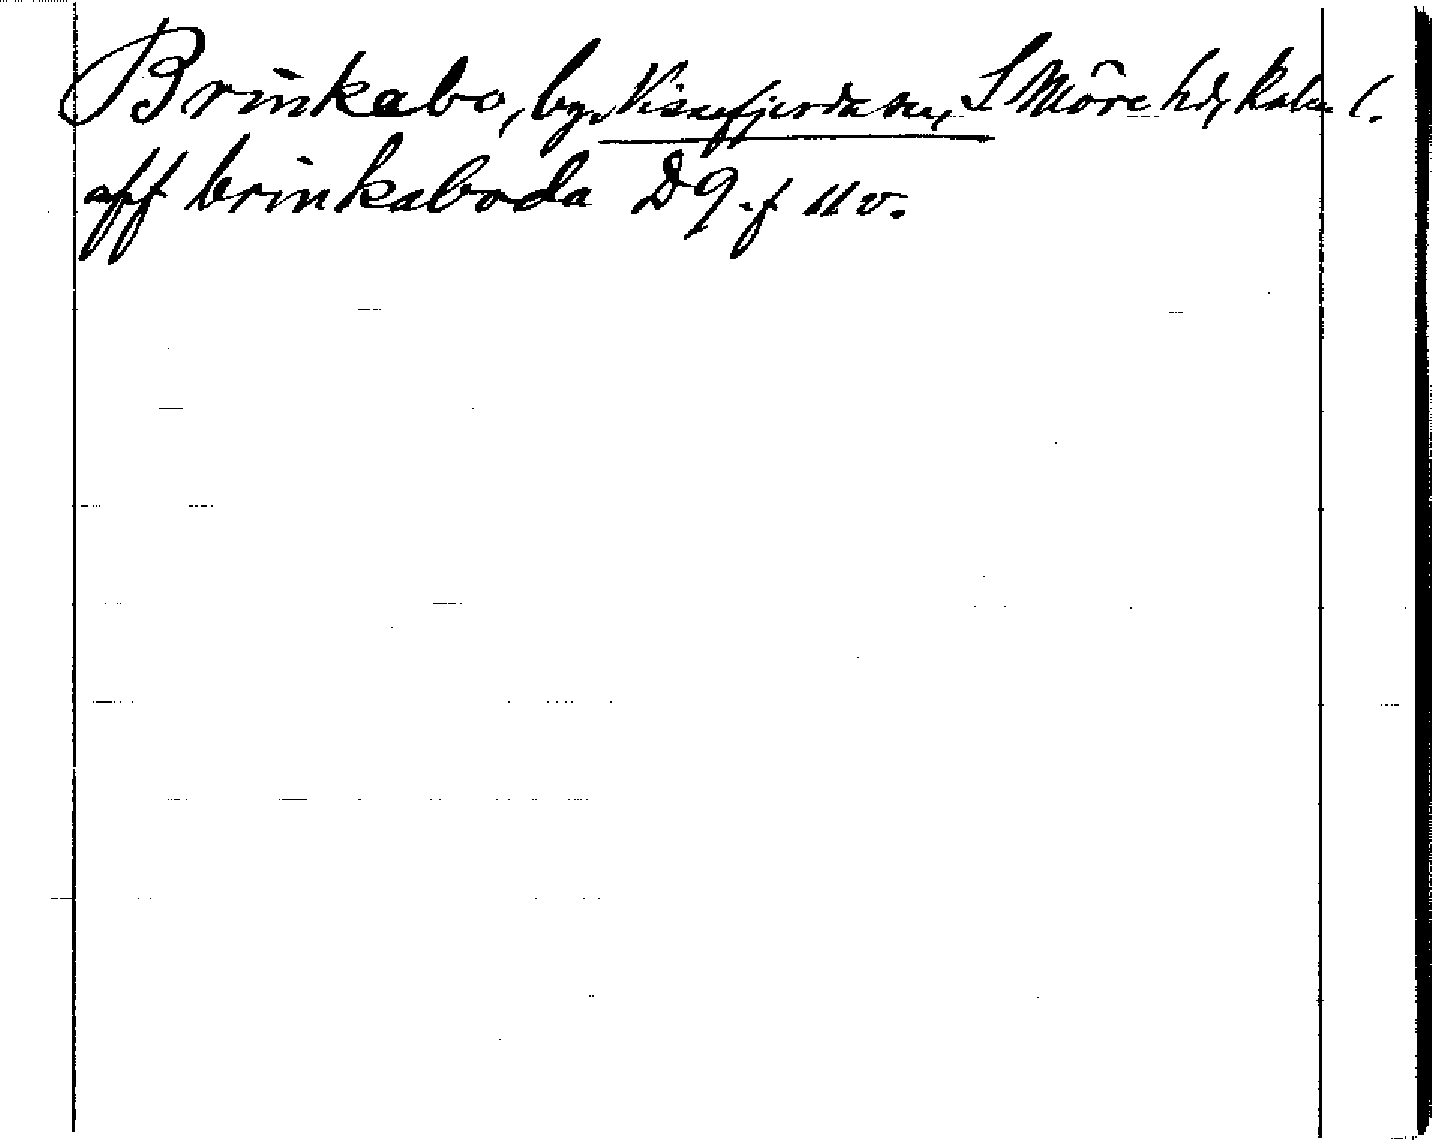 Brinkabo, by, Vissefjerda sn, S Möre hd, Kalm l.
aff brinkaboda D 9 f 11 v.